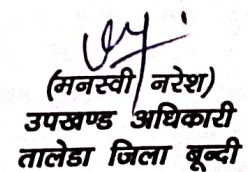 (मनस्वी नरेश)
उपखण्ड अधिकारी
तालेडा जिला बून्दी